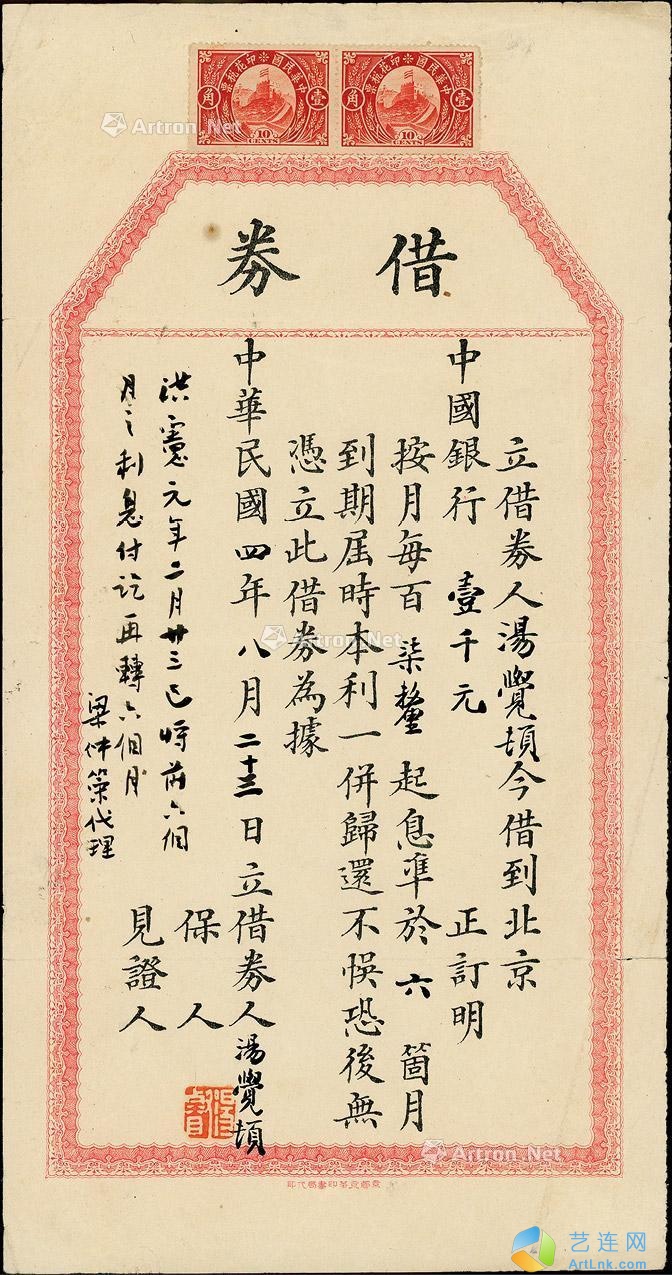 中華民國印花稅票
壹角
10
CENTS
中華民國印花稅票
壹角
10
CENTS
借券
立借券人湯覺頓今借到北京
中國銀行壹千元正訂明
按月每百柒釐起息準於六箇月
到期屆時本利一併歸還不悞恐後無
憑立此借券為據
中華民國四年八月二十三日立借券人湯覺頓
保人
見證人
洪憲元年二月廿三已時前六個
月之利息付訖再轉六個月
梁仲策代理
Artron.Net
Artron.Net
Artron.Net
艺连网
ArtLnk.com